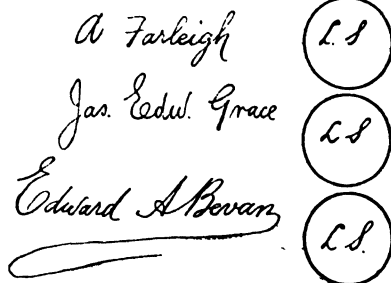 A Farleigh L.S
Jas. Edw. Grace L S
Edward A Bevan L S.